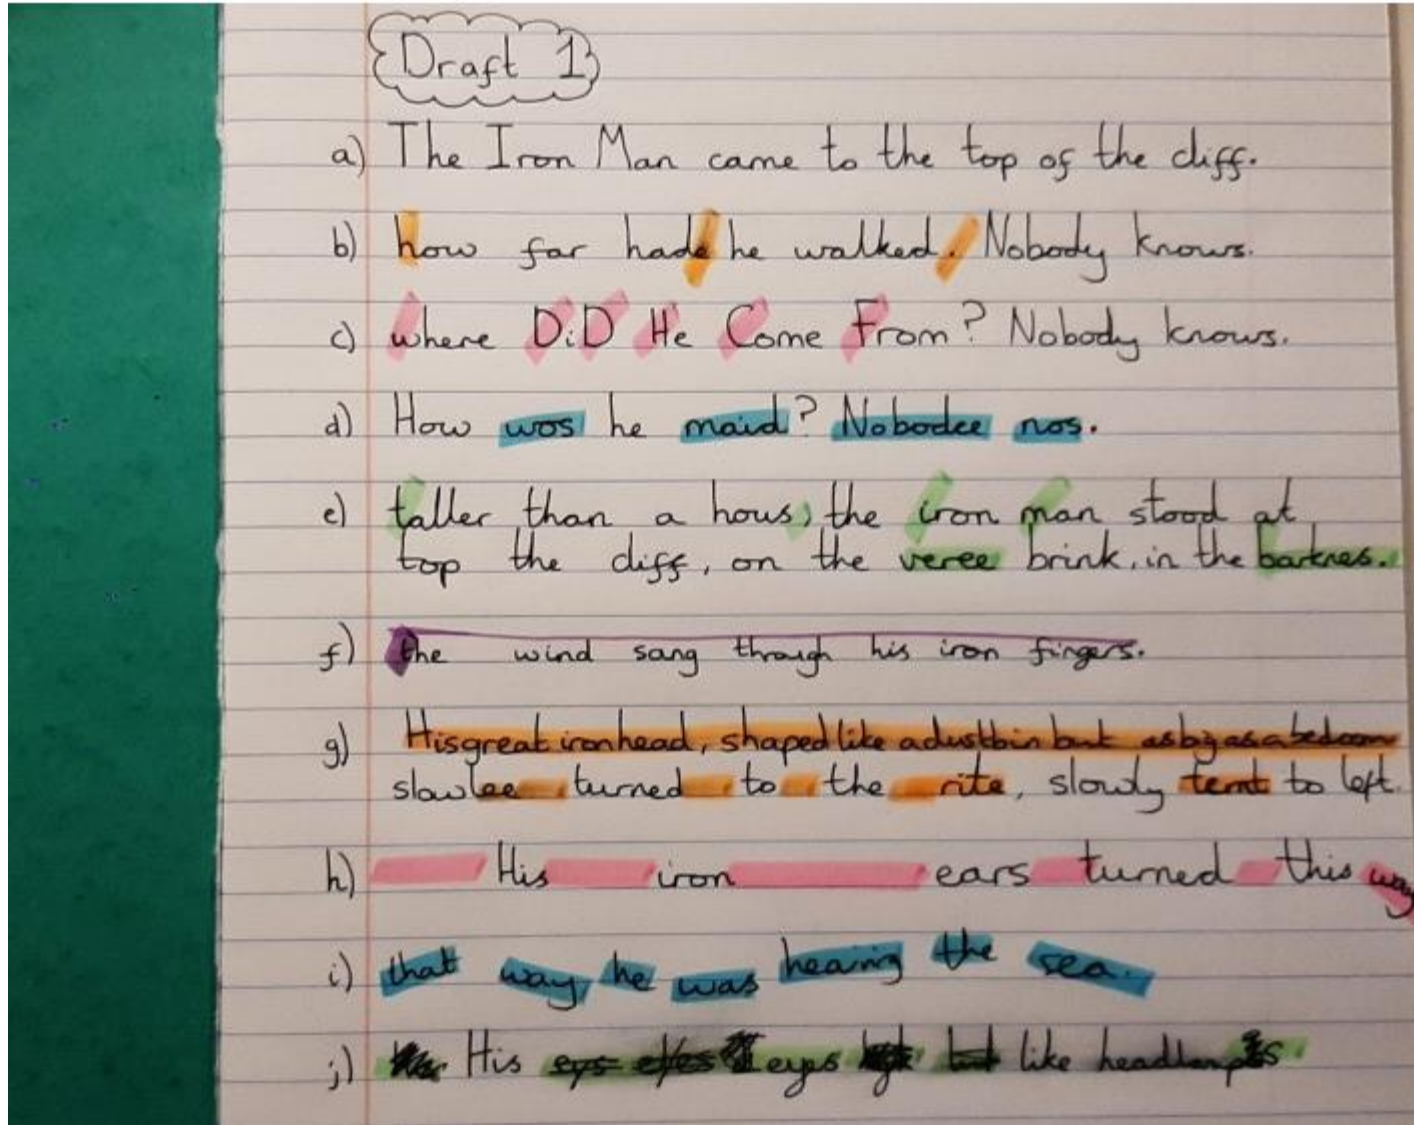 Draft 1
a) The Iron Man came to the top of the cliff.
b) how far hade he walked. Nobody knows.
c) where DiD He Come From? Nobody knows.
d) How wos he maid? Nobodee nos.
e) taller than a hous, the iron man stood at
top the cliff, on the veree brink, in the barknes.
f) the wind sang through his iron fingers.
g) Hisgreat ironhead, shapedlike adustbin but asbigasabedoom
slowlee turned to the rite, slowly ternt to left.
h) His iron ears turned this way
i) that way he was hearing the sea.
j) His eys eyes like headlamps